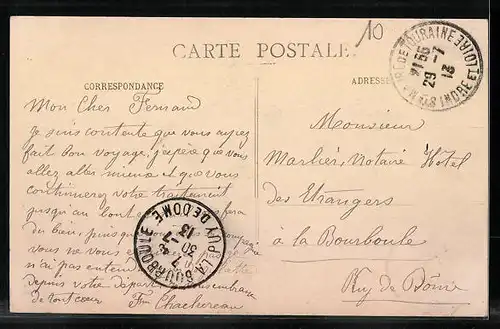 10
CARTE POSTALE
CORRESPONDANCE
ADRESSE
STE MAURE DE TOURAINE INDRE ET LOIRE
21 55
29 -7
13
Mon Cher Fernand
Je suis contente que vous ayez
fait bon voyage, j'espère que vous
allez aller mieux et que vous
continuerez votre traitement
jusqu'au bout fera
du bien, puisque compagnie
vous ne vous
n'ai pas entendu
depuis votre départ embrasse
de tout cœur
Monsieur
Marbier, Notaire Hôtel
des Etrangers
à la Bourboule
Puy de Dôme
LA BOURBOULE PUY DE DOME
30 -7
13